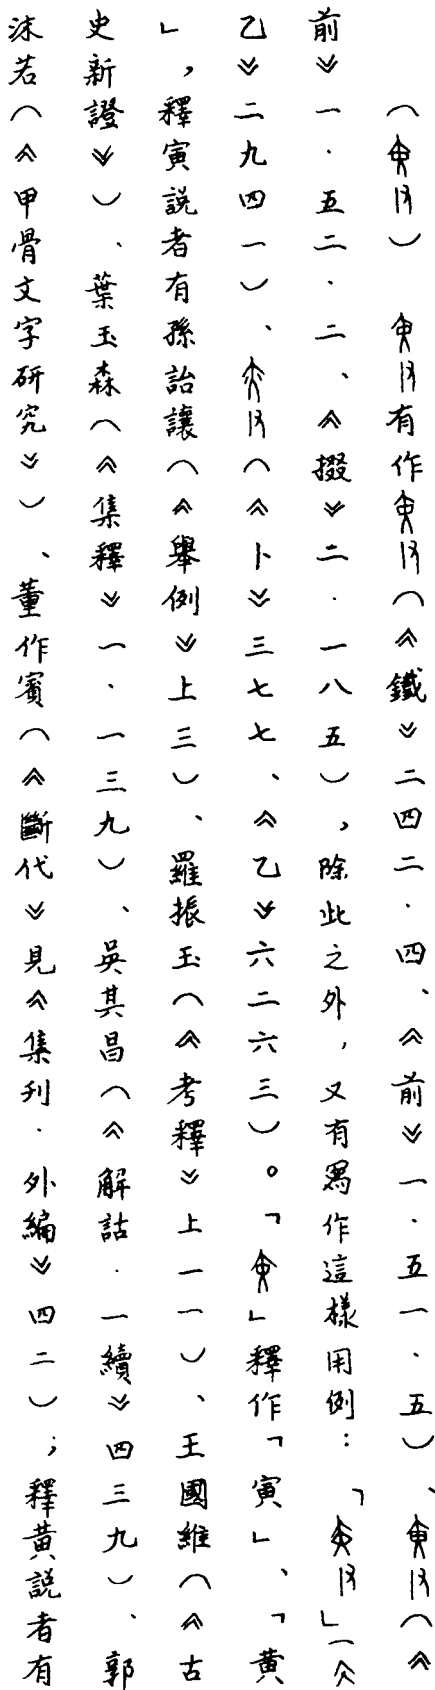 （）　有作（《鐵》二四二．四、《前》一．五一．五）、（《
前》一．五二．二、《掇》二．一八五），除此之外，又有寫作這樣用例：「」（《
乙》二九四一）、（《卜》三七七、《乙》六二六三）。「」釋作「寅」、「黄
」，釋寅説者有孫詒讓（《舉例》上三）、羅振玉（《考釋》上一一）、王國維（《古
史新證》）、葉玉森（《集釋》一．一三九）、吳其昌（《解詁．一續》四三九）、郭
沫若（《甲骨文字研究》）、董作賓（《斷代》見《集刊．外編》四二）；釋黄説者有